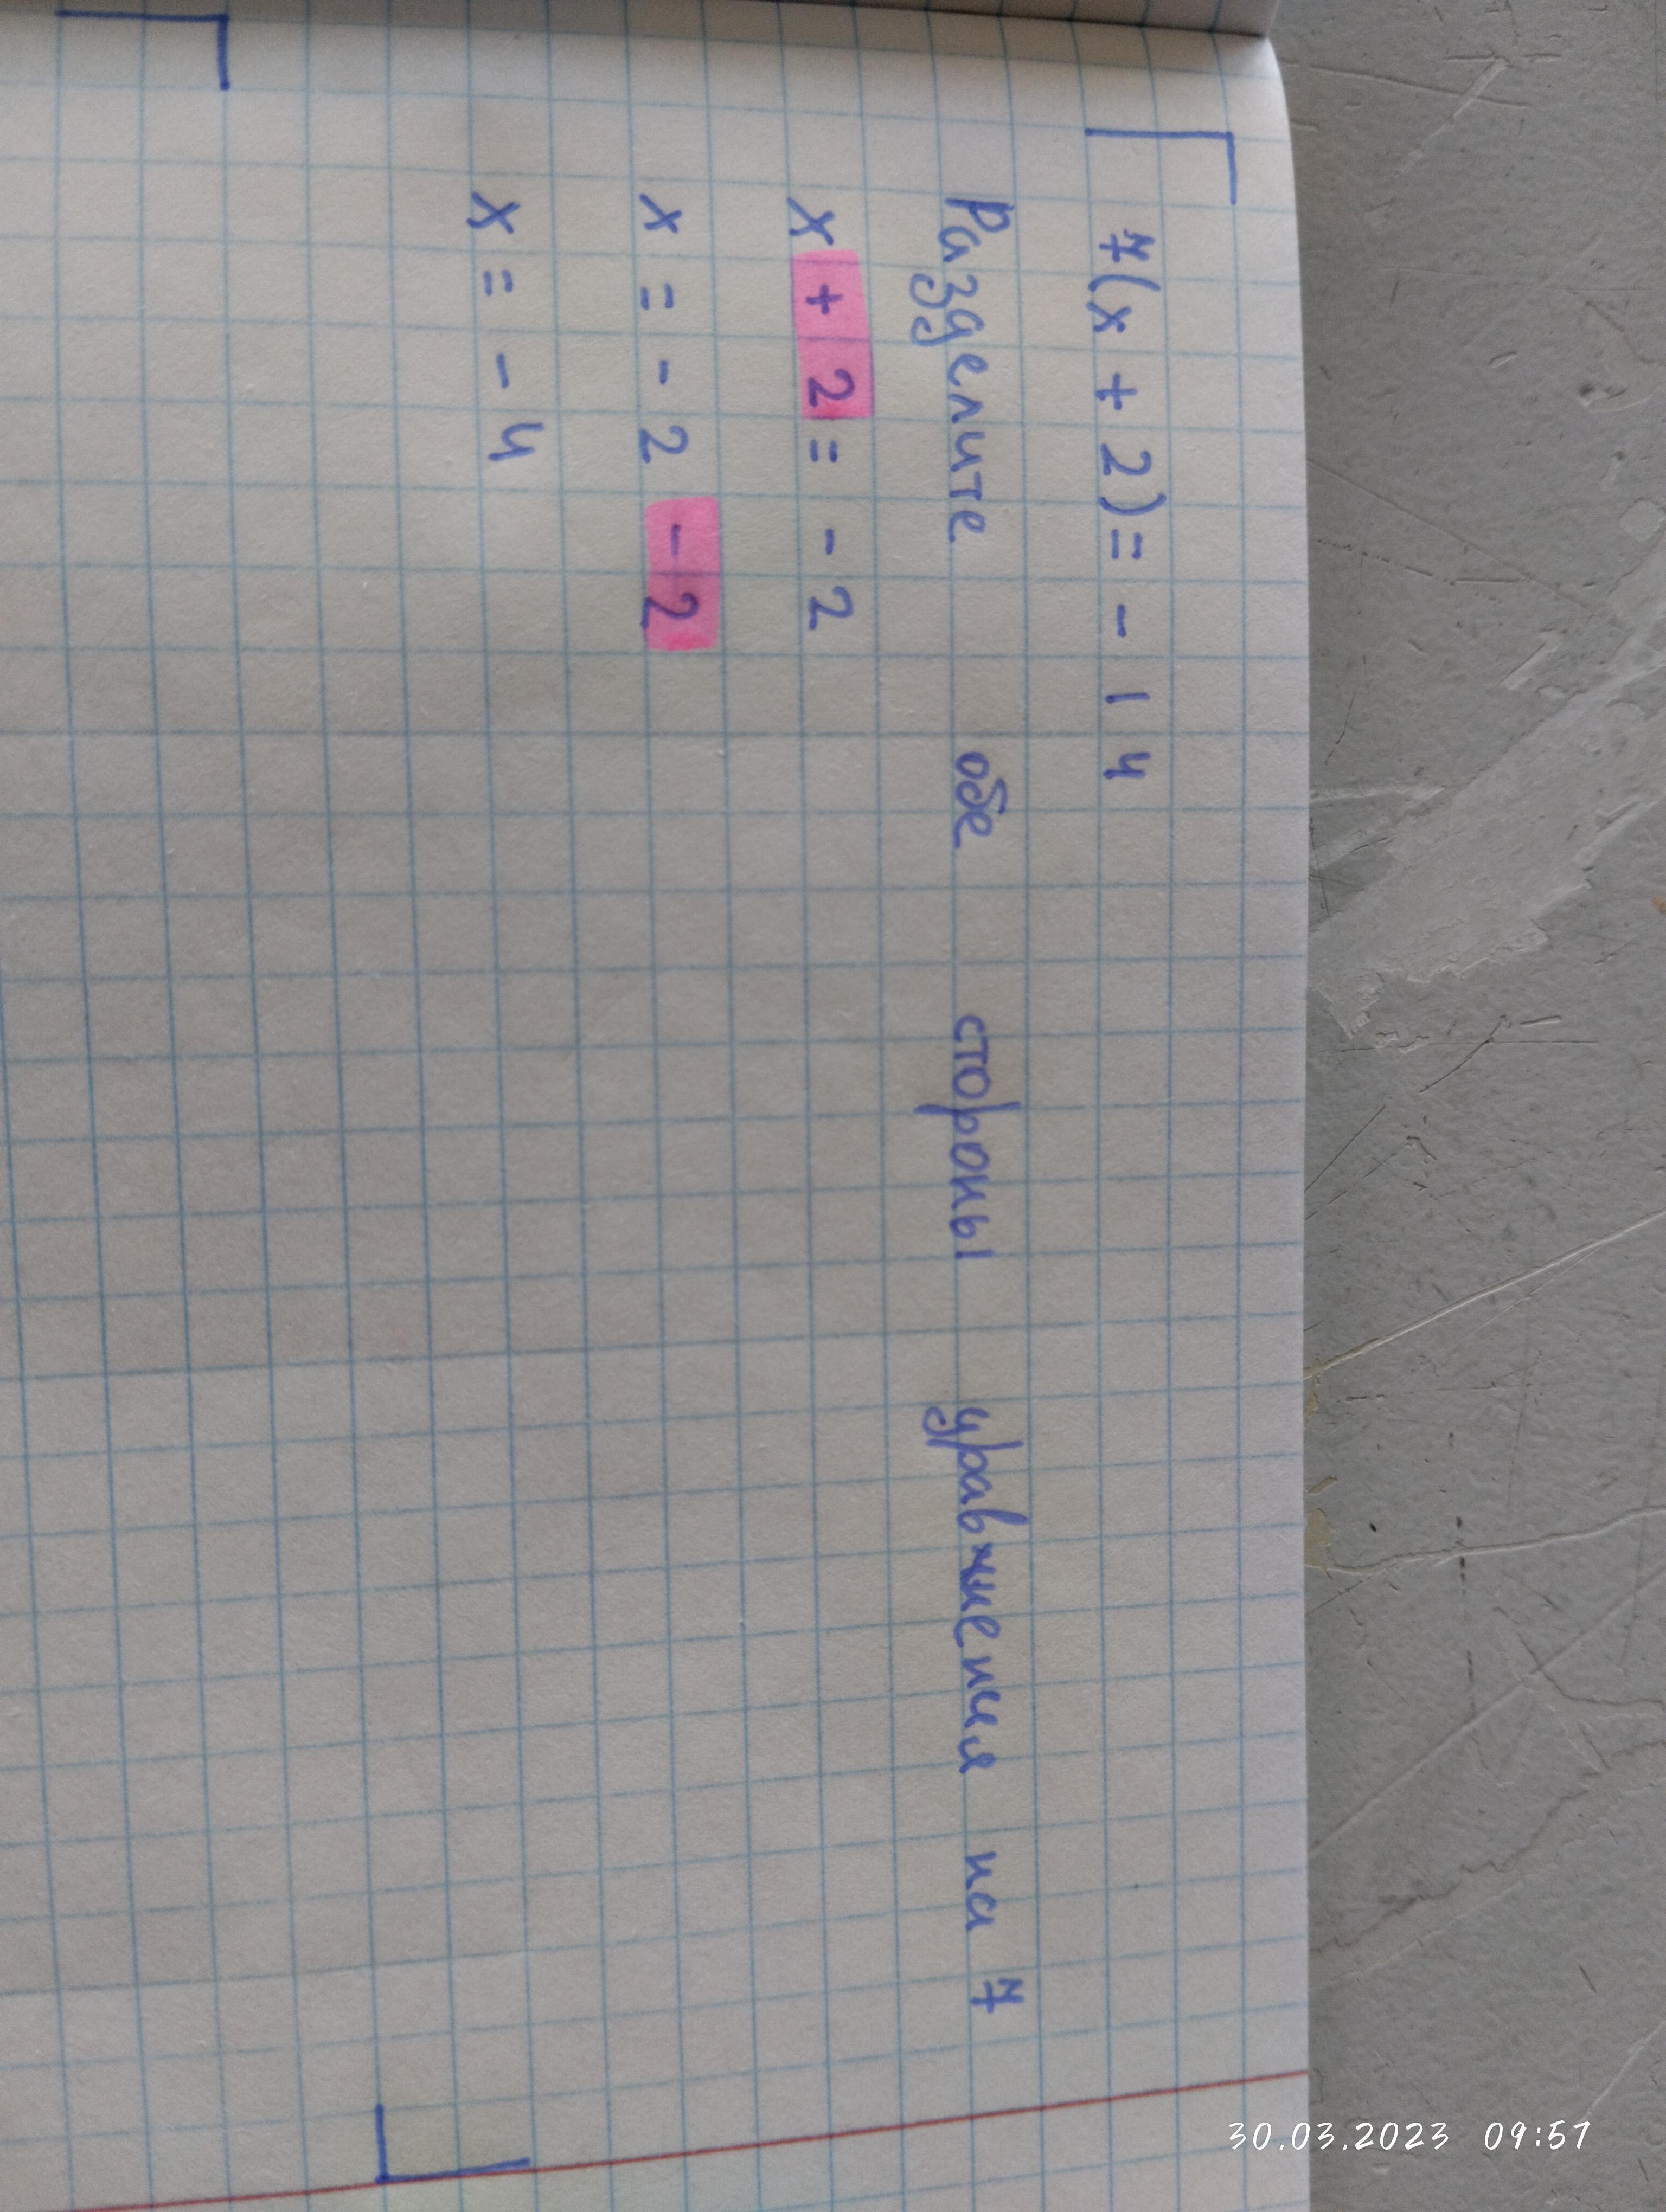 7(x + 2) = - 14
Разделите обе стороны уравнения на 7
x + 2 = - 2
x = - 2 - 2
x = - 4
30.03.2023 09:57